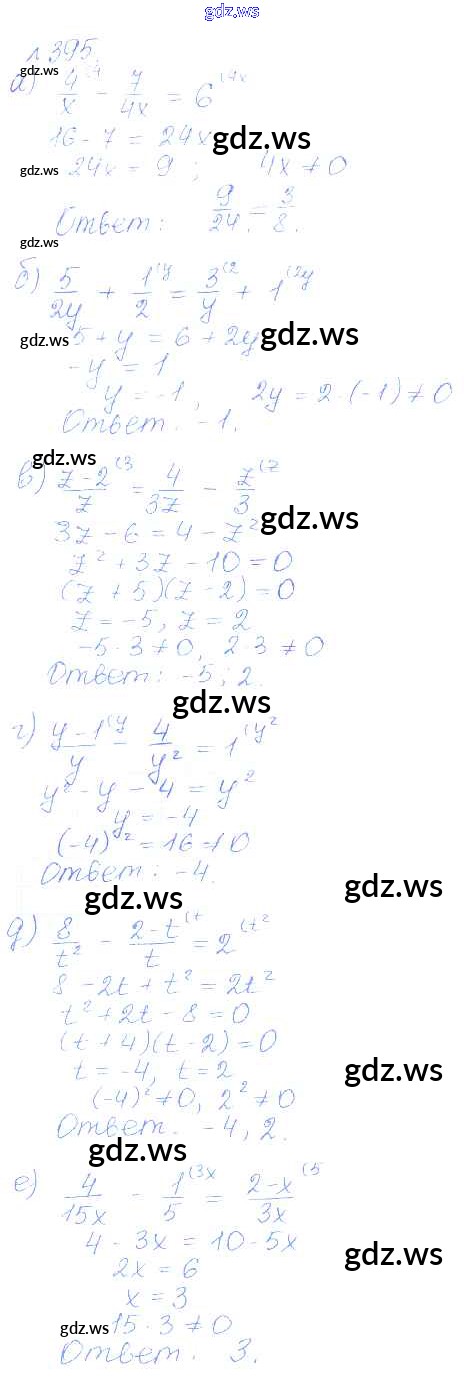 gdz.ws
л 395.
gdz.ws
а) 4/x (4 - 7/4x = 6 (4x
16 - 7 = 24x gdz.ws
gdz.ws 24x = 9 ; 4x ≠ 0
Ответ: 9/24 = 3/8.
gdz.ws
б) 5/2y + 1/2 (y = 3/y (2 + 1 (2y
gdz.ws 5 + y = 6 + 2y gdz.ws
-y = 1
y = -1, 2y = 2·(-1) ≠ 0
Ответ: -1.
gdz.ws
в) z-2/z (3 = 4/3z - z/3 (z
3z - 6 = 4 - z² gdz.ws
z² + 3z - 10 = 0
(z + 5)(z - 2) = 0
z = -5, z = 2
-5·3 ≠ 0, 2·3 ≠ 0
Ответ: -5; 2.
gdz.ws
г) y-1/y (y - 4/y² = 1 (y²
y² - y - 4 = y²
y = -4
(-4)² = 16 ≠ 0
Ответ: -4.
gdz.ws gdz.ws
д) 8/t² - 2-t/t (t = 2 (t²
8 - 2t + t² = 2t²
t² + 2t - 8 = 0
(t + 4)(t - 2) = 0
t = -4, t = 2 gdz.ws
(-4)² ≠ 0, 2² ≠ 0
Ответ. -4, 2.
gdz.ws
е) 4/15x - 1/5 (3x = 2-x/3x (5
4 - 3x = 10 - 5x gdz.ws
2x = 6
x = 3
gdz.ws 15·3 ≠ 0
Ответ. 3.